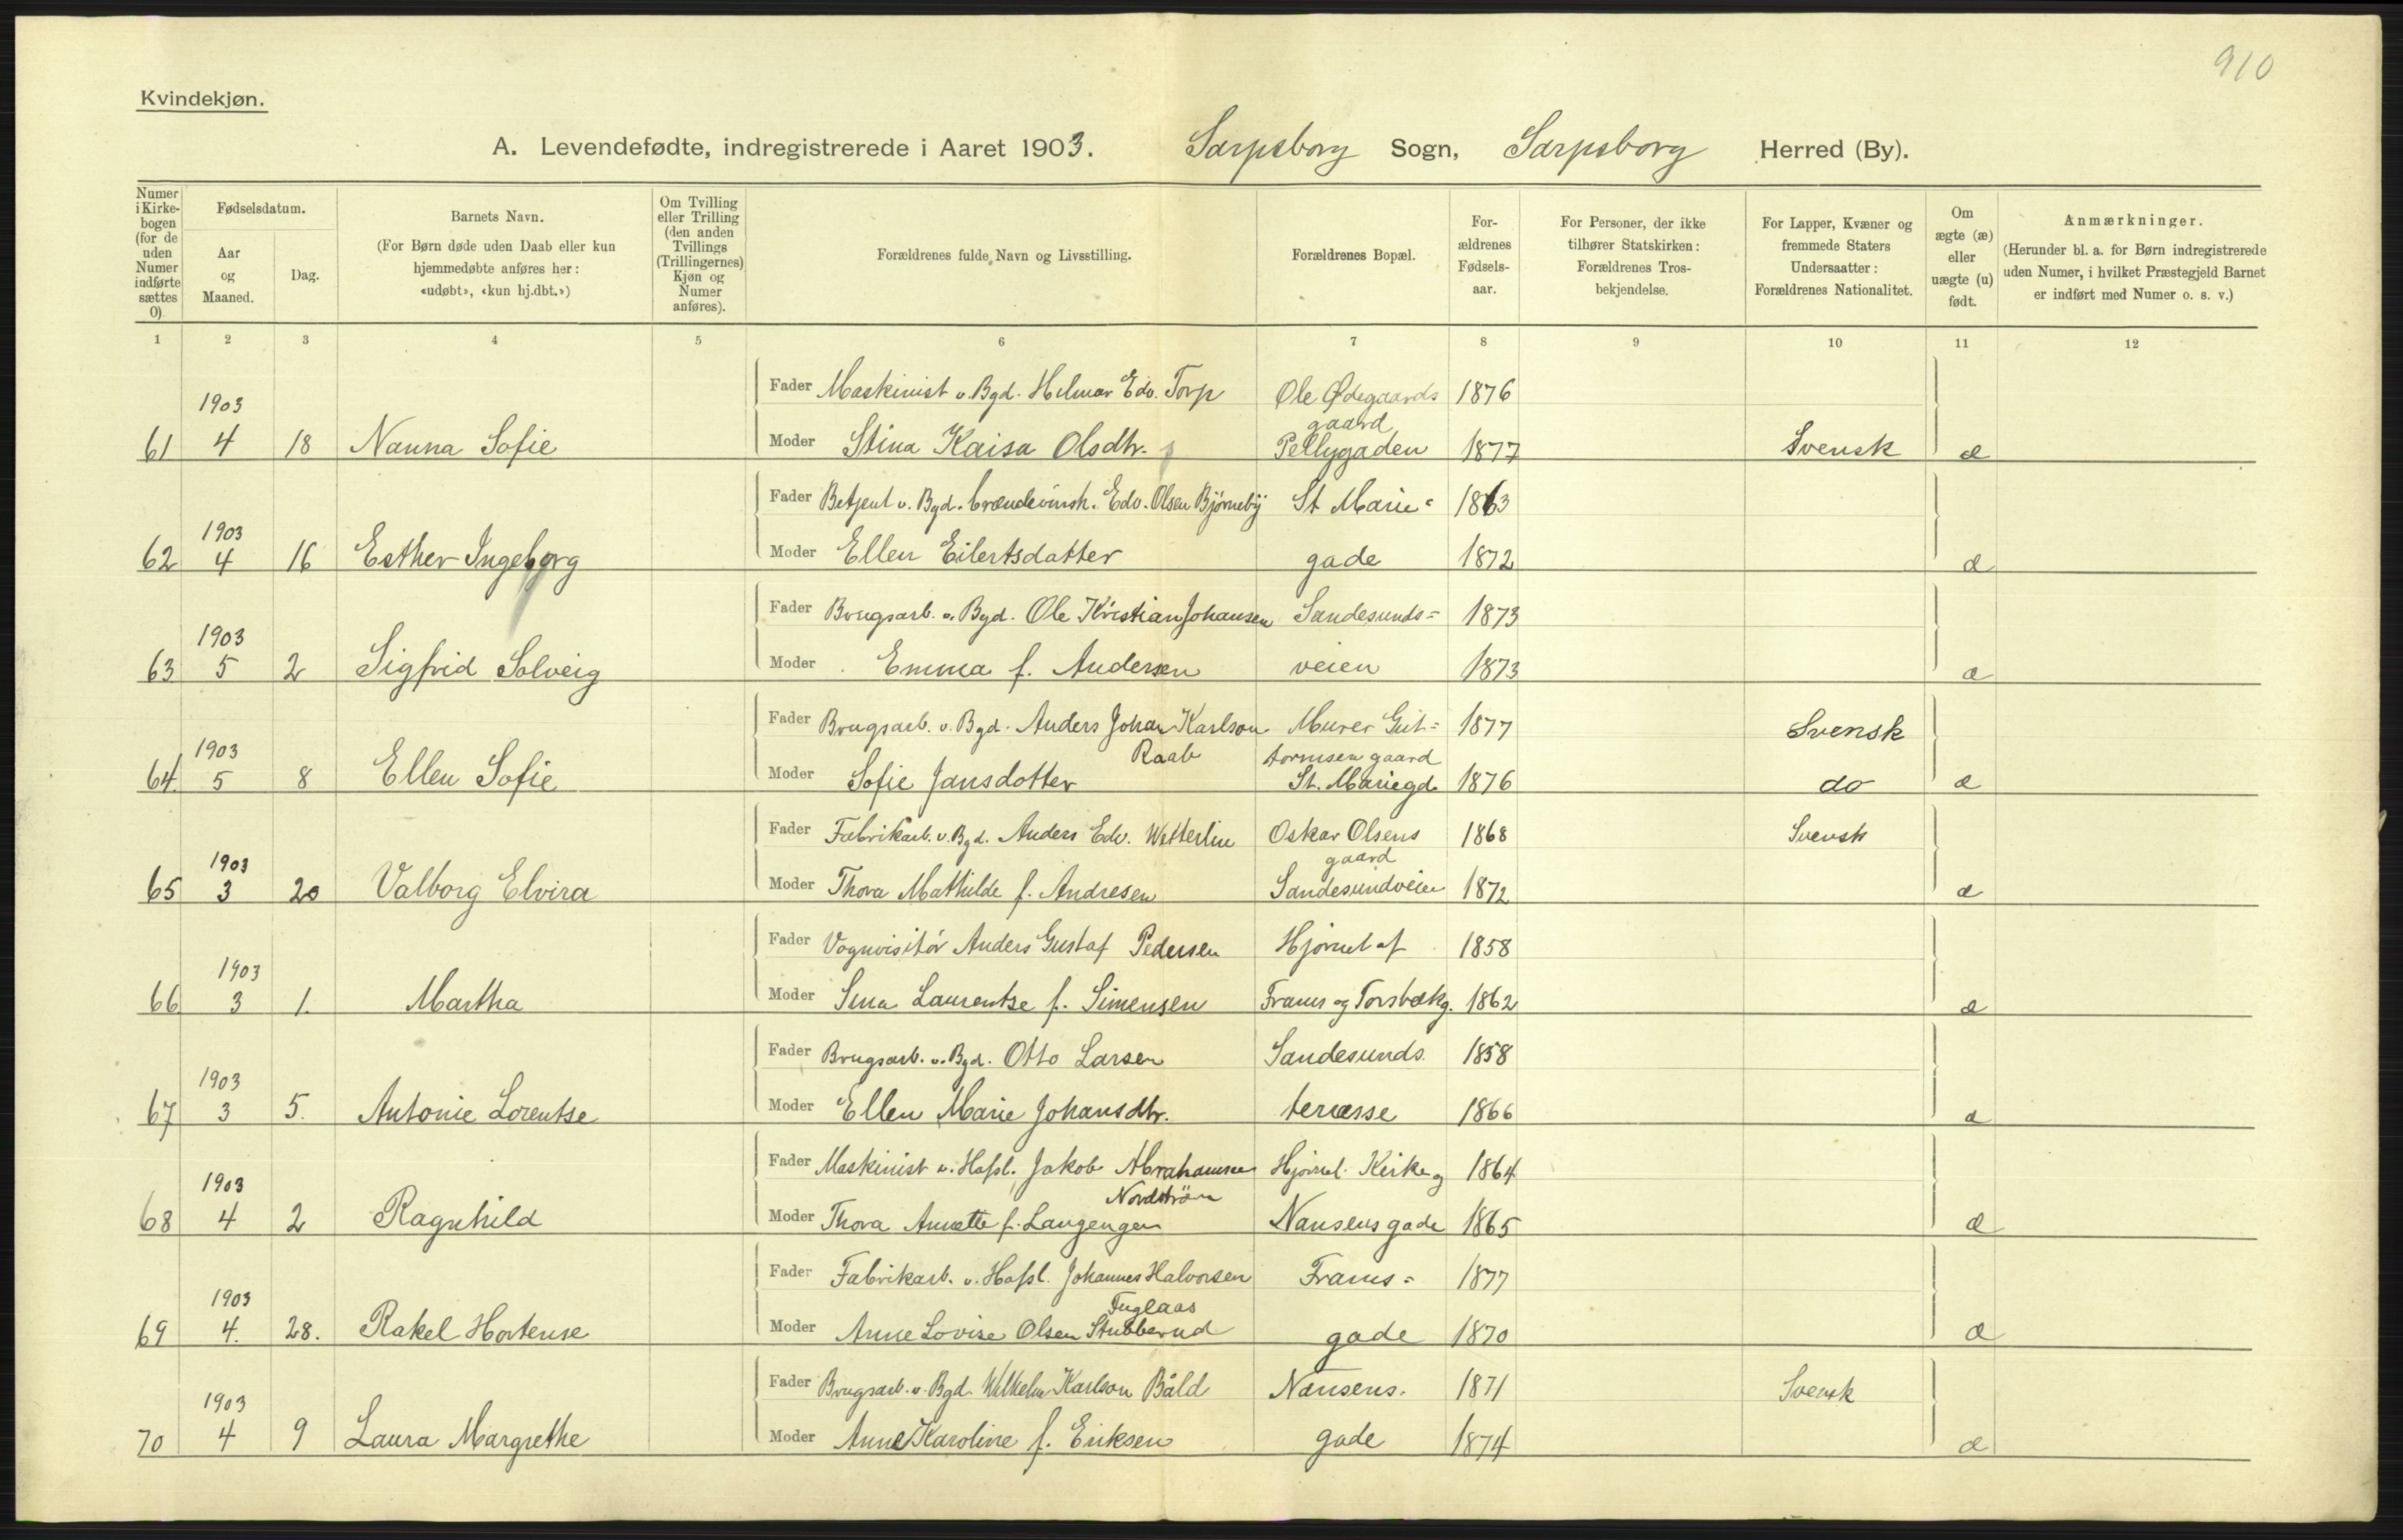 910
Kvindekjøn.
A. Levendefødte, indregistrerede i Aaret 1903. Sarpsborg Sogn, Sarpsborg Herred (By).
Numer i Kirke-bogen (for de uden Numer indførte sættes 0).
Fødselsdatum.
Aar og Maaned.
Dag.
Barnets Navn.
(For Børn døde uden Daab eller kun hjemmedøbte anføres her: «udøbt», «kun hj.dbt.»)
Om Tvilling eller Trilling (den anden Tvillings (Trillingernes) Kjøn og Numer anføres).
Forældrenes fulde Navn og Livsstilling.
Forældrenes Bopæl.
For-ældrenes Fødsels-aar.
For Personer, der ikke tilhører Statskirken: Forældrenes Tros-bekjendelse.
For Lapper, Kvæner og fremmede Staters Undersaatter: Forældrenes Nationalitet.
Om ægte (æ) eller uægte (u) født.
Anmærkninger.
(Herunder bl. a. for Børn indregistrerede uden Numer, i hvilket Præstegjeld Barnet er indført med Numer o. s. v.)
1 2 3 4 5 6 7 8 9 10 11 12
Fader Maskinist v. Bgd. Hilmar Edv. Torp Ole Ødegaards 1876
1903 gaard
61 4 18 Nanna Sofie Moder Stina Kaisa Olsdtr. Pellygaden 1877 Svensk æ
Fader Betjent v. Bgd. brændevinsh. Edv. Olsen Bjørneby St Marie= 1863
1903
62 4 16 Esther Ingeborg Moder Ellen Eilertsdatter gade 1872 æ
Fader Brugsarb. v. Bgd. Ole Kristian Johansen Sandesunds= 1873
1903
63 5 2 Sigfrid Solveig Moder Emma f. Andersen veien 1873 æ
Fader Brugsarb. v. Bgd. Anders Johan Karlson Murer Gut= 1877 Svensk
1903 Raab tormsen gaard
64 5 8 Ellen Sofie Moder Sofie Jansdotter St. Mariegd. 1876 do æ
Fader Fabrikarb. v. Bgd. Anders Edv. Wetterlin Oskar Olsens 1868 Svensk
1903 gaard
65 3 20 Valborg Elvira Moder Thora Mathilde f. Andresen Sandesundveien 1872 æ
Fader Vognvisitør Anders Gustaf Pedersen Hjørnet af 1858
1903
66 3 1. Martha Moder Sina Laurentse f. Simensen Frams og Torsbækg. 1862 æ
Fader Brugsarb. v. Bgd. Otto Larsen Sandesunds 1858
1903
67 3 5. Antonie Lorentse Moder Ellen Marie Johansdtr. terasse 1866 æ
Fader Maskinist v. Hafsl. Jakob Abrahamsen Hjørnet Kirke og 1864
1903 Nordstrøm
68 4 2 Ragnhild Moder Thora Annette f. Langengen Nansensgade 1865 æ
Fader Fabrikarb. v. Hafsl. Johannes Halvorsen Frams= 1877
1903 Fuglaas
69 4. 28. Rakel Hortense Moder Anne Lovise Olsen Stubberud gade 1870 æ
Fader Brugsarb. v. Bgd. Wilhelm Karlson Båld Nansens. 1871 Svensk
1903
70 4 9 Laura Margrethe Moder Anne Karoline f. Eriksen gade 1874 æ